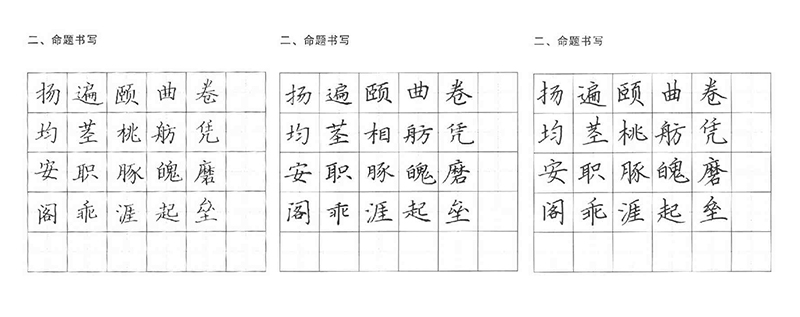 二、命题书写
扬遍颐曲卷
均茎桃舫凭
安职豚魄磨
阁乖涯起垒
二、命题书写
扬遍颐曲卷
均茎相舫凭
安职豚魄磨
阁乖涯起垒
二、命题书写
扬遍颐曲卷
均茎桃舫凭
安职豚魄磨
阁乖涯起垒